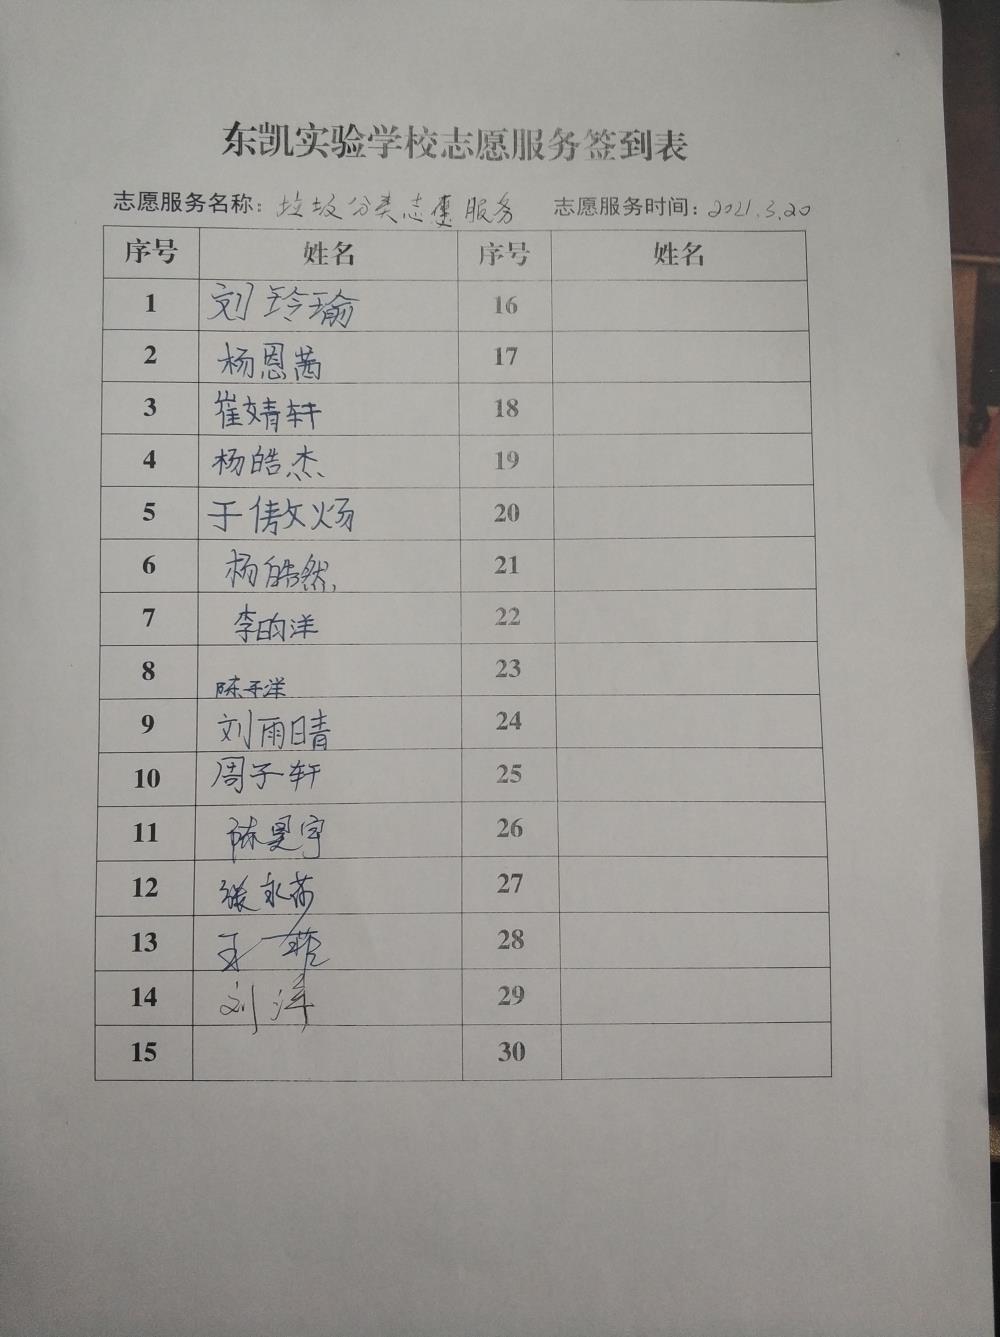 东凯实验学校志愿服务签到表
志愿服务名称：垃圾分类志愿服务 志愿服务时间：2021.3.20
序号 姓名 序号 姓名
1 刘玲瑜 16
2 杨恩茜 17
3 崔婧轩 18
4 杨皓杰 19
5 于傲炀 20
6 杨皓然 21
7 李昀洋 22
8 陈子洋 23
9 刘雨晴 24
10 周子轩 25
11 陈昱宇 26
12 张永莎 27
13 王菲 28
14 刘洋 29
15 30